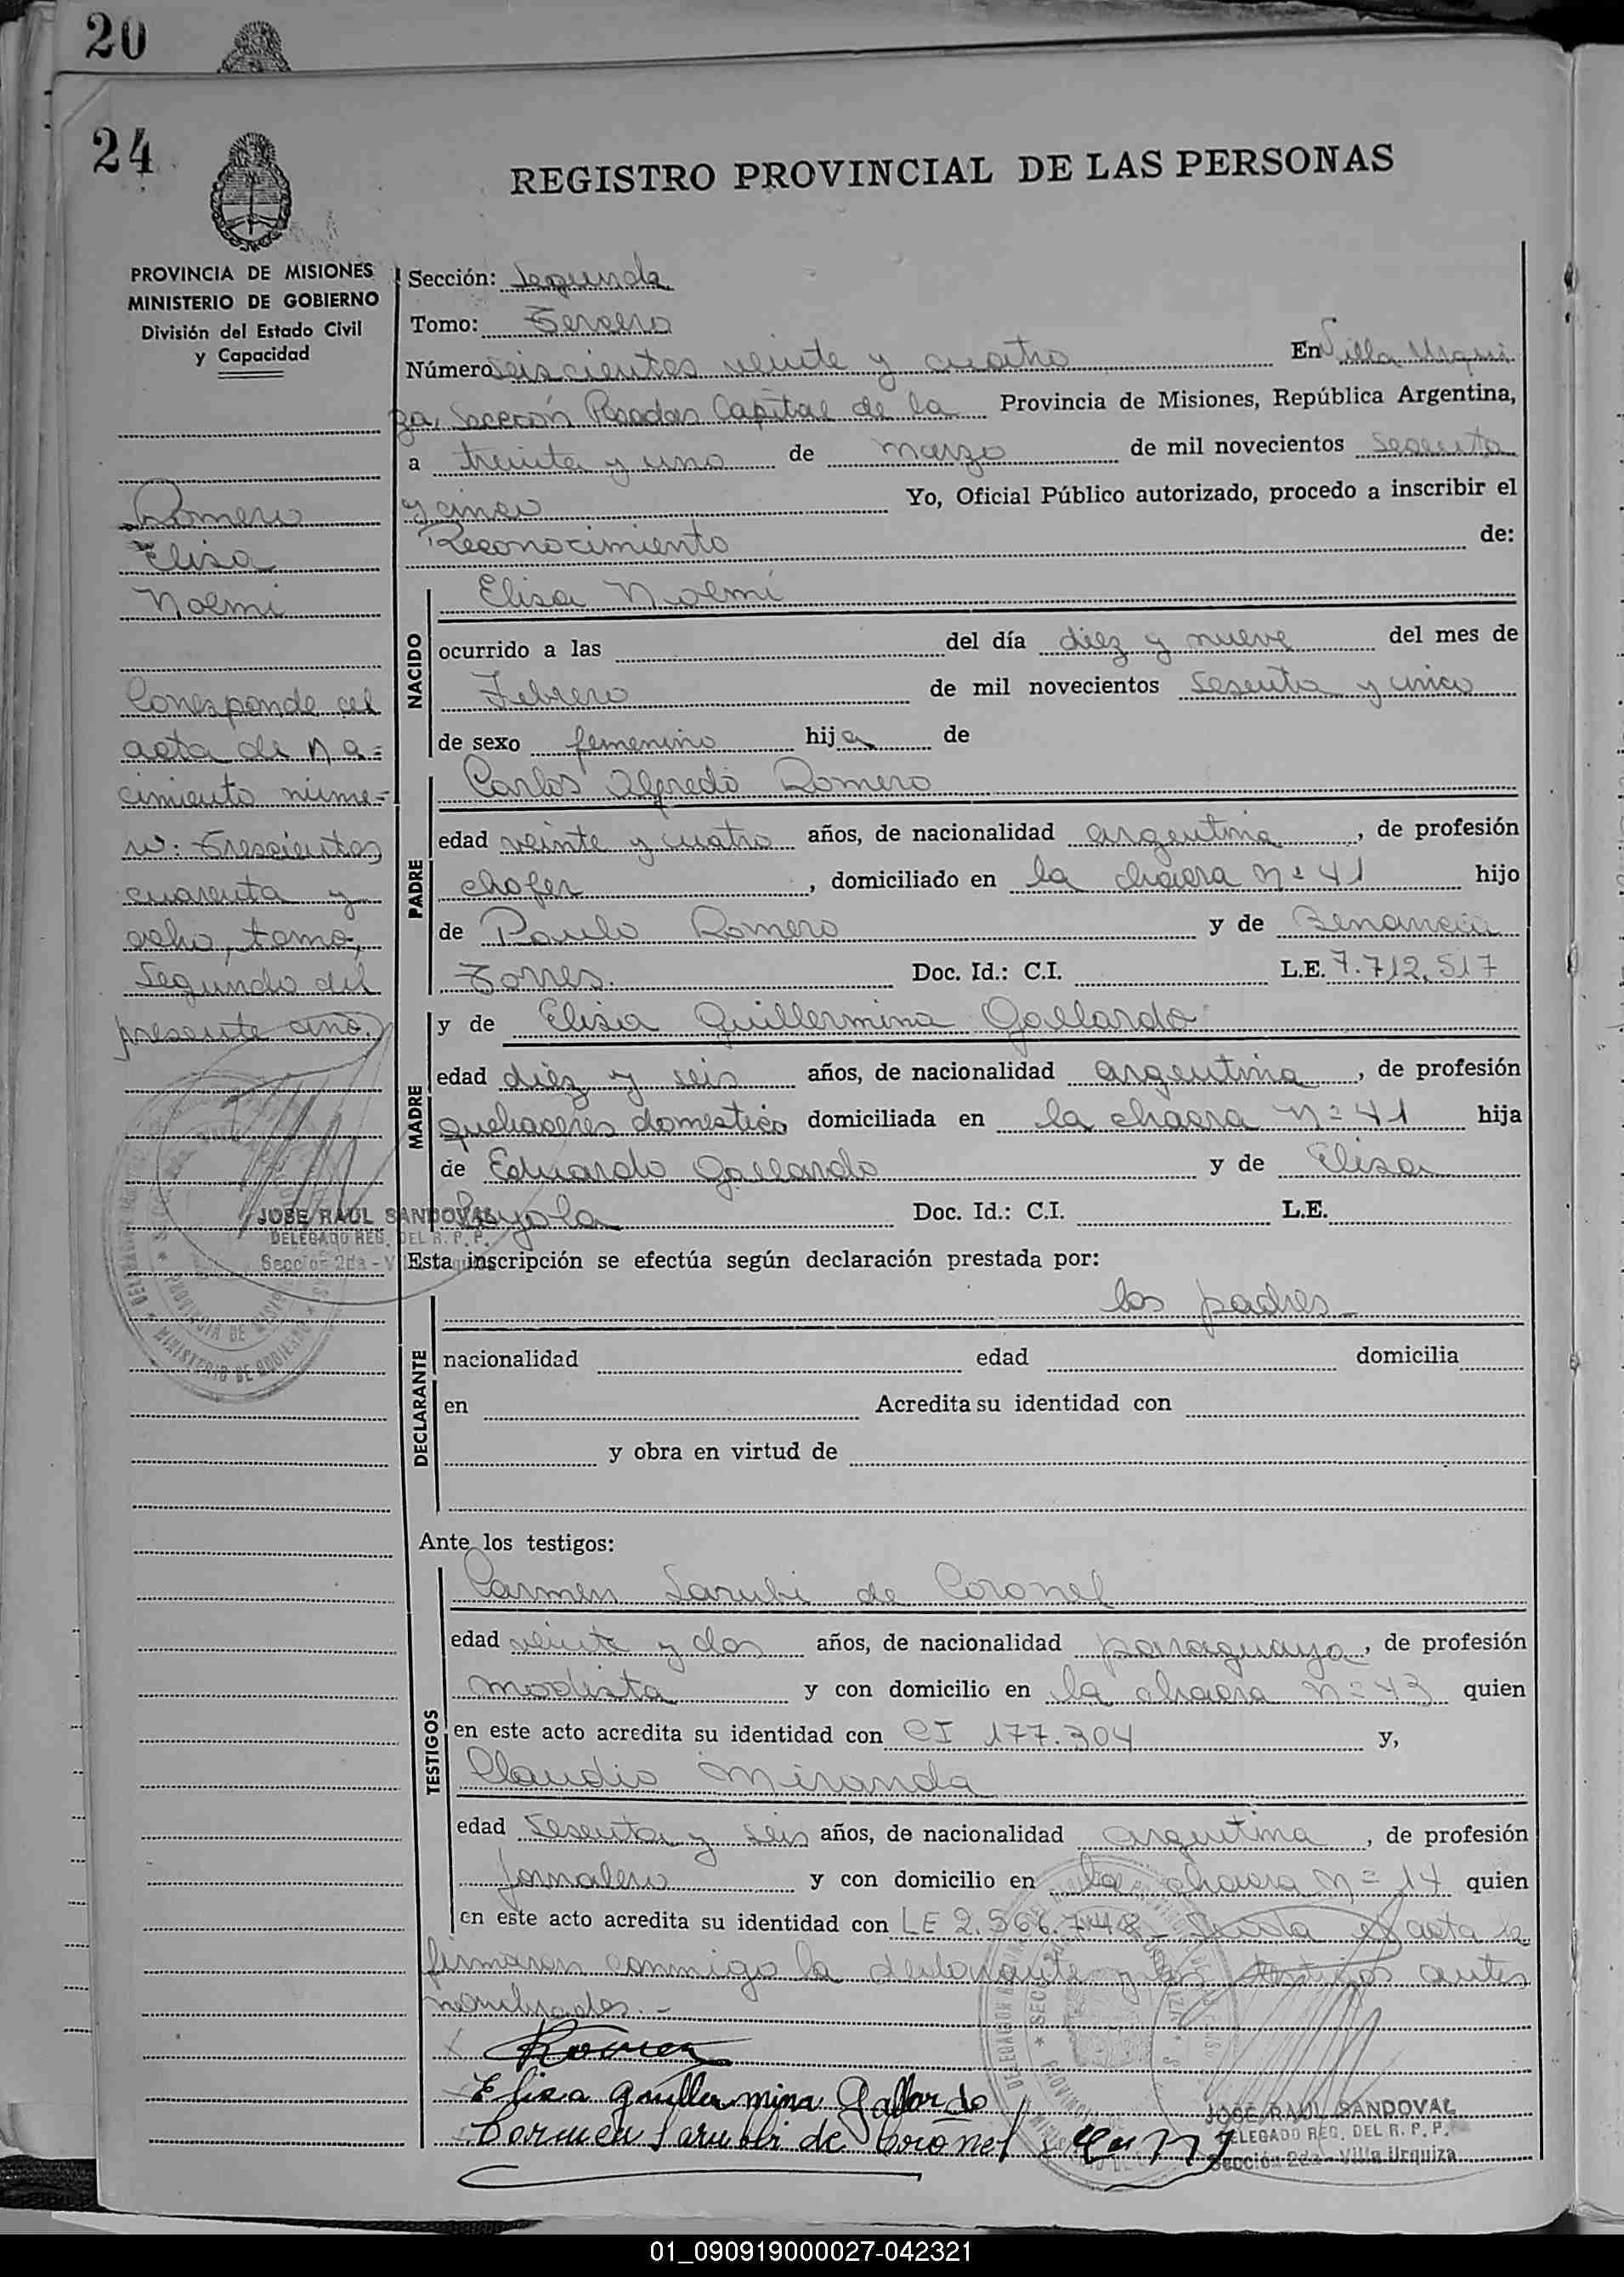 20
24
REGISTRO PROVINCIAL DE LAS PERSONAS
PROVINCIA DE MISIONES
MINISTERIO DE GOBIERNO
División del Estado Civil
y Capacidad
Romero
Elisa
Noemi
Corresponde al
acta de na=
cimiento núme=
ro: Trescientos
cuarenta y
ocho, tomo,
Segundo del
presente año.
JOSE RAUL SANDOVAL
DELEGADO REG. DEL R. P. P.
Sección 2da - Villa Urquiza
Sección: Segunda
Tomo: Tercero
Número seiscientos veinte y cuatro En Villa Urqui
za, Sección Posadas Capital de la Provincia de Misiones, República Argentina,
a treinta y uno de marzo de mil novecientos sesenta
y cinco Yo, Oficial Público autorizado, procedo a inscribir el
Reconocimiento de:
NACIDO
Elisa Noemí
ocurrido a las del día diez y nueve del mes de
Febrero de mil novecientos sesenta y cinco
de sexo femenino hija de
PADRE
Carlos Alfredo Romero
edad veinte y cuatro años, de nacionalidad argentina, de profesión
chofer, domiciliado en la chacra nº 41 hijo
de Paulo Romero y de Benancia
Torres. Doc. Id.: C.I. L.E. 7.712.517
MADRE
y de Elisa Guillermina Gallardo
edad diez y seis años, de nacionalidad argentina, de profesión
quehaceres domestico domiciliada en la chacra nº 41 hija
de Eduardo Gallardo y de Elisa
Doc. Id.: C.I. L.E.
Esta inscripción se efectúa según declaración prestada por:
DECLARANTE
los padres
nacionalidad edad domicilia
en Acredita su identidad con
y obra en virtud de
Ante los testigos:
TESTIGOS
Carmen Sarubi de Coronel
edad veinte y dos años, de nacionalidad paraguaya, de profesión
modista y con domicilio en la chacra nº 43 quien
en este acto acredita su identidad con CI 177.304 y,
Claudio Miranda
edad sesenta y seis años, de nacionalidad argentina, de profesión
jornalero y con domicilio en la chacra nº 14 quien
en este acto acredita su identidad con LE 2.566.748 - Leida el acta la
firmaron conmigo la declarante y los testigos antes
nombrados.-
Elisa Guillermina Gallardo
Carmen Sarubbi de Coronel
JOSE RAUL SANDOVAL
DELEGADO REG. DEL R. P. P.
Sección 2da - Villa Urquiza
01_090919000027-042321